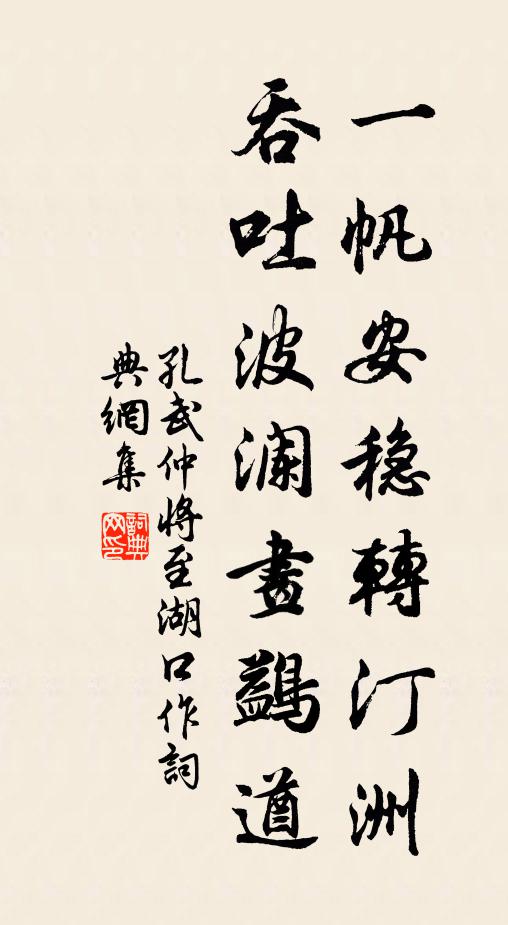 一帆安稳轉汀洲
吞吐波澜畫鷁遒
孔武仲将至湖口作詞
典網集
詞典網印